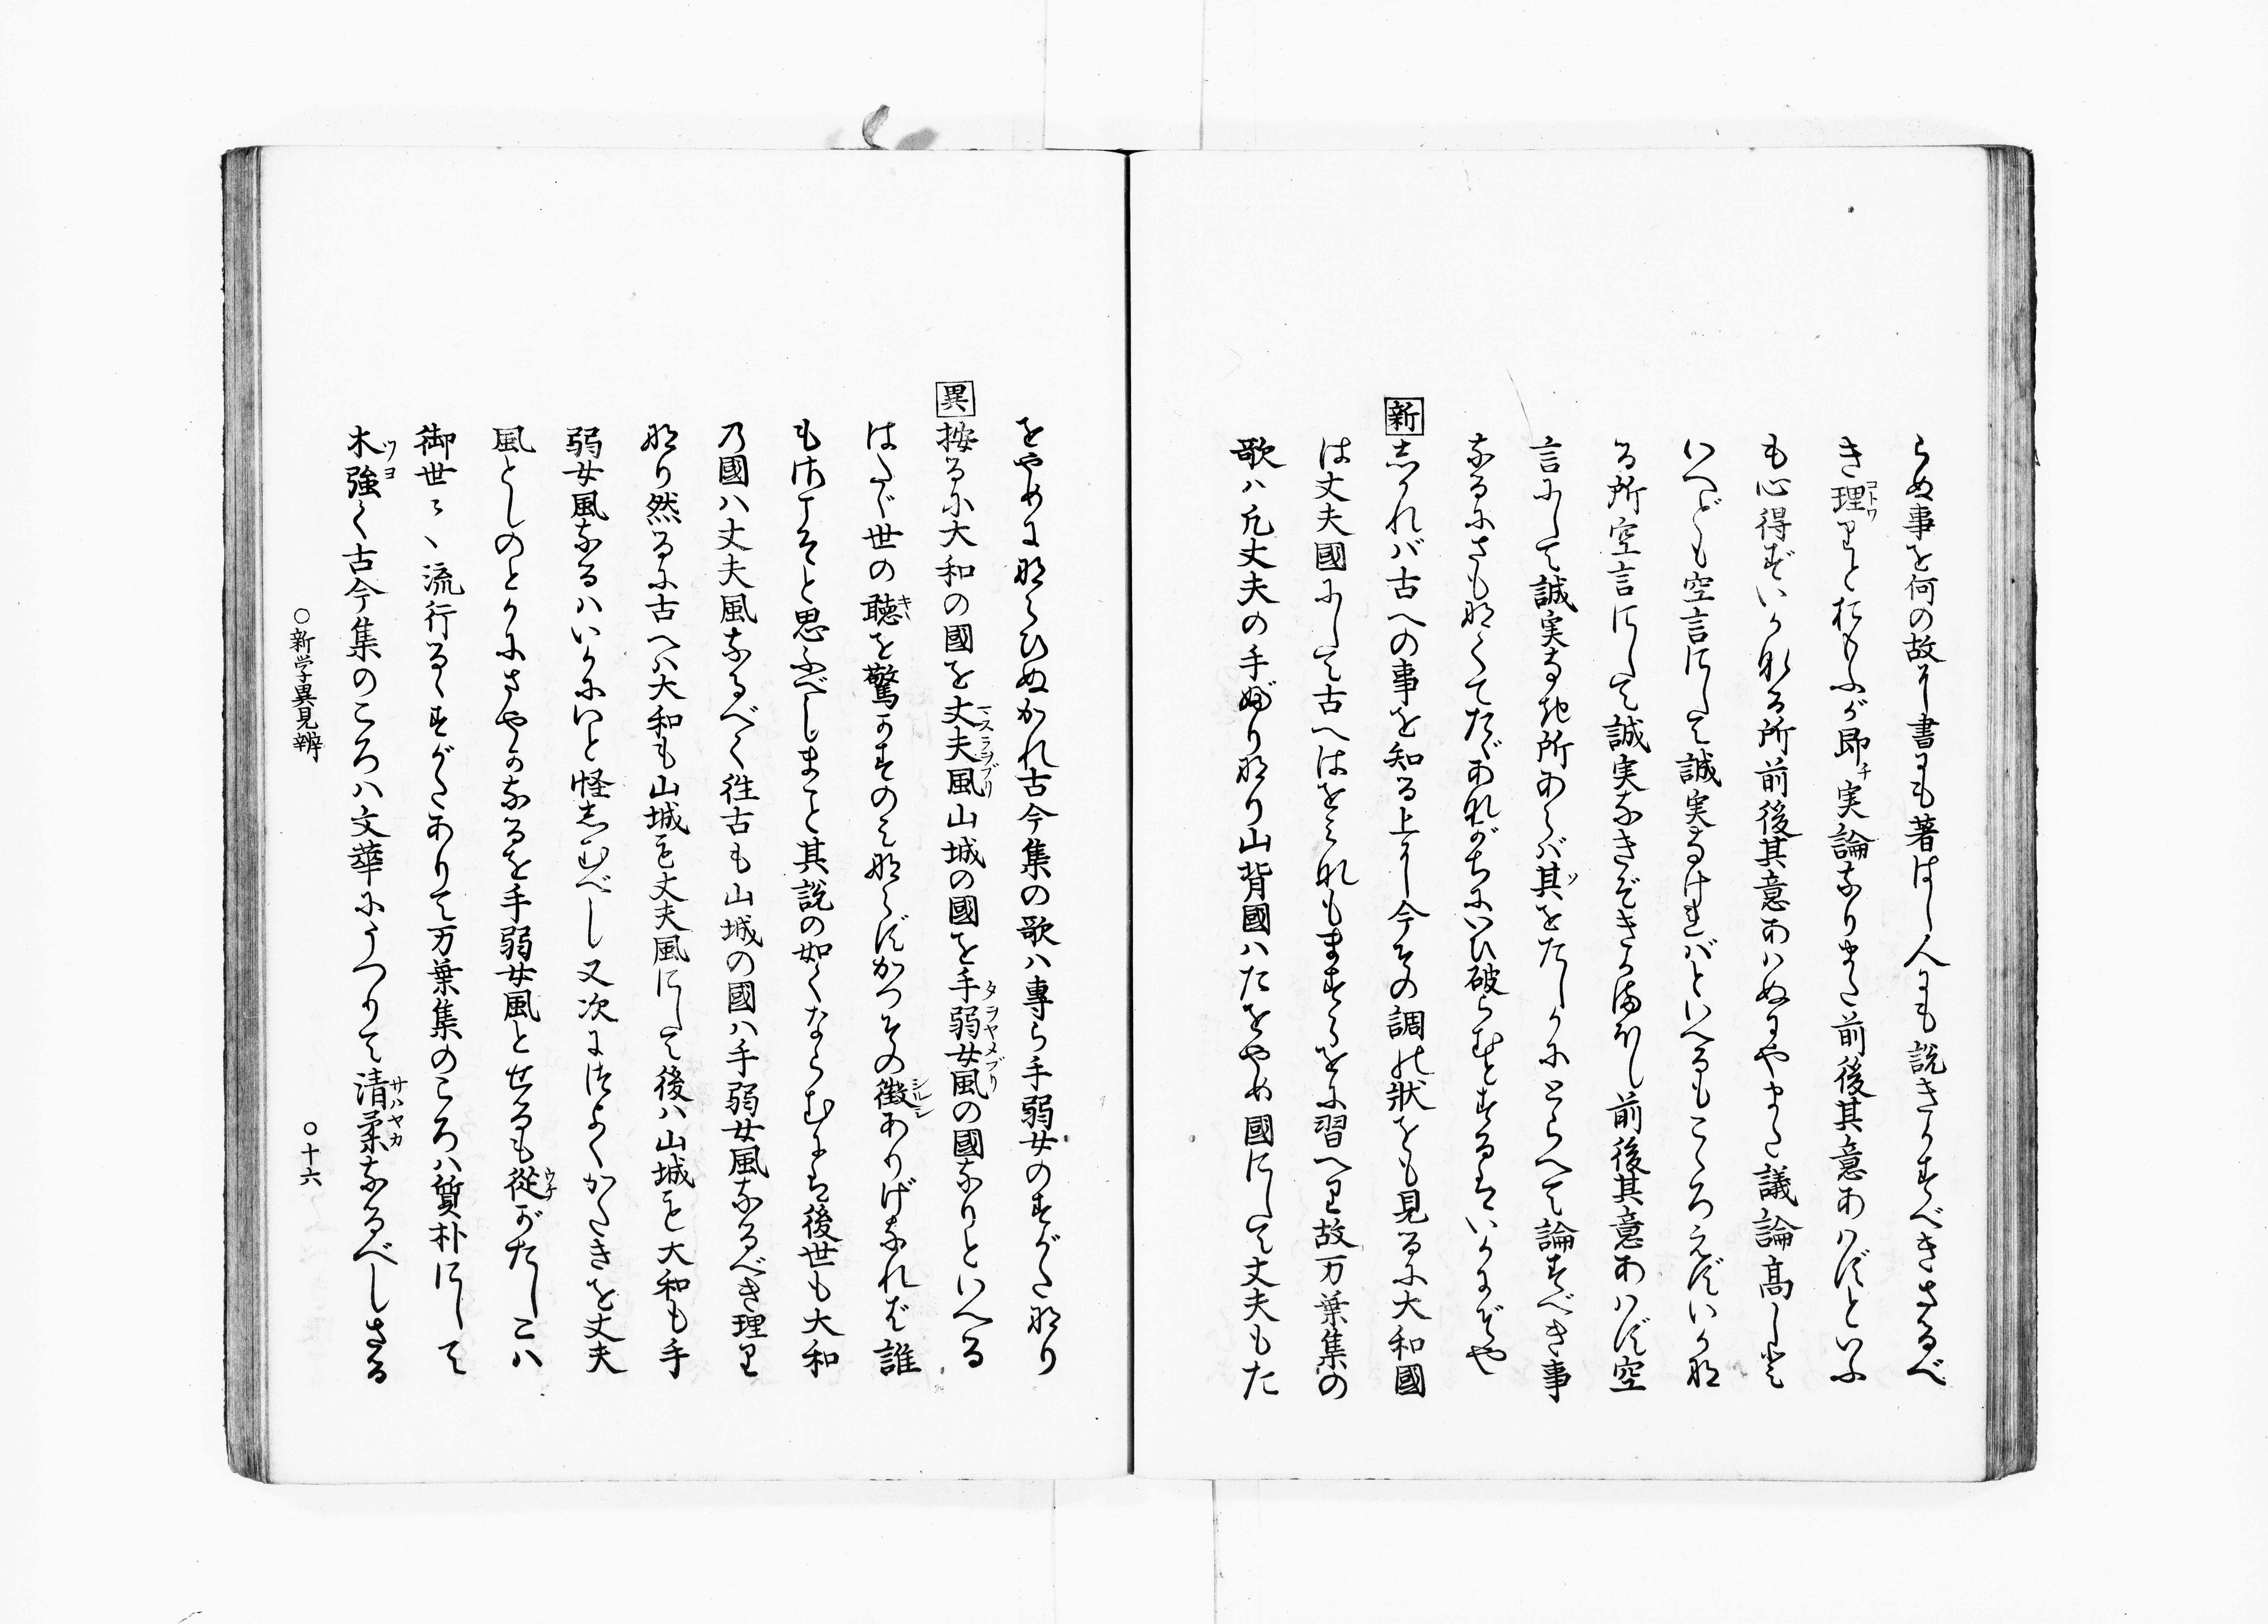 らぬ事を何の故にし書にも著はし人にも説きかすべきさるべ
き理りとおもふが即実論なりまた前後其意あはずといふ
も心得ずいかなる所前後其意あはぬにやまた議論高しと
いへども空言にして誠実なければといへるもこゝろえずいかな
る所空言にして誠実なきぞきかまほし前後其意あはず空
言にして誠実なき所あらば其をたしかにとらへて論ずべき事
なるにさもなくてたゞあながちにいひ破らむとするはいかにぞや
新 しかれバ古への事を知る上にし今その調の状をも見るに大和國
は丈夫國にして古へはをみなもますらをに習へり故万葉集の
歌ハ凡丈夫の手ぶりなり山背國ハたをやめ國にして丈夫もた
をやめにならひぬかれ古今集の歌ハ專ら手弱女のすがたなり
異 按るに大和の國を丈夫風山城の國を手弱女風の國なりといへる
はたゞ世の聴を驚かすのみならずかつその徴ありげなれば誰
もげにさこそと思ふべしまこと其説の如くならむには後世も大和
乃國ハ丈夫風なるべく徃古も山城の國ハ手弱女風なるべき理り
なり然るに古へハ大和も山城も丈夫風にして後ハ山城も大和も手
弱女風なるハいかにいと怪しむべし又次につよくかたきを丈夫
風としのとかにさやかなるを手弱女風とせるも従がたしこハ
御世々ゝ流行るゝすがたありて万葉集のころハ質朴にして
木強く古今集のころハ文華にうつりて清柔なるべしさる
○新学異見辨
○十六